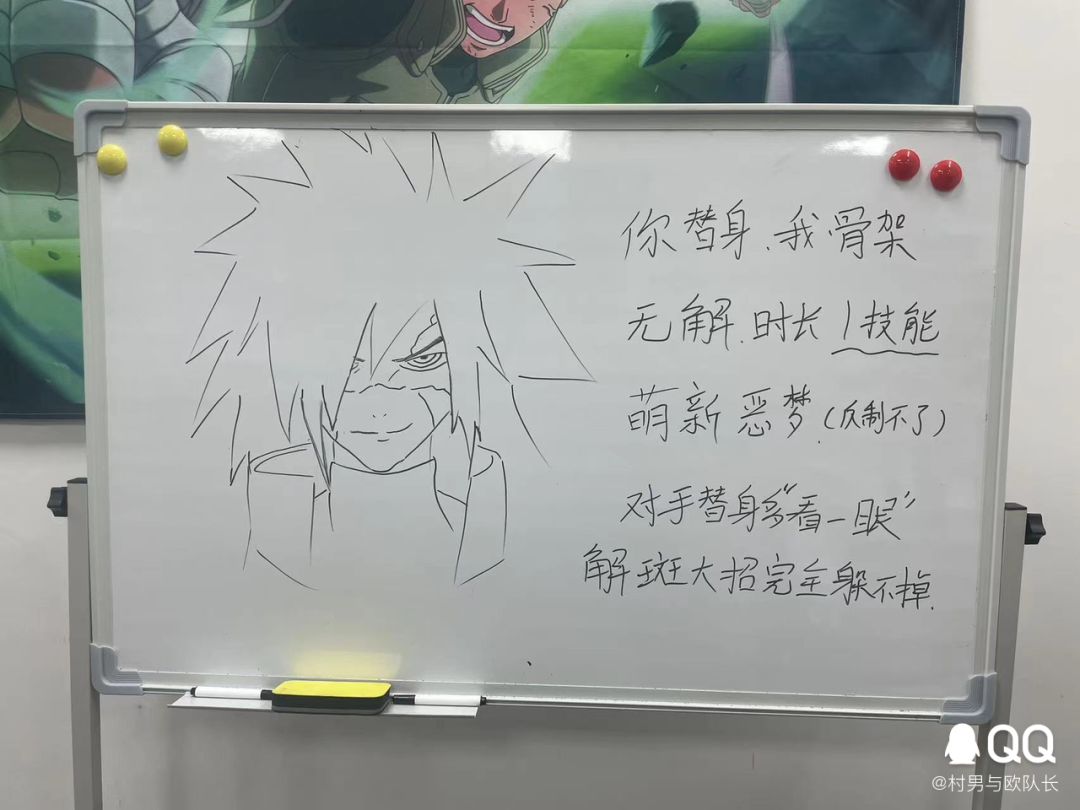 你替身.我骨架
无解.时长1技能
萌新恶梦.(反制不了)
对手替身多“看一眼”
解斑大招完全躲不掉.
QQ
@村男与欧队长